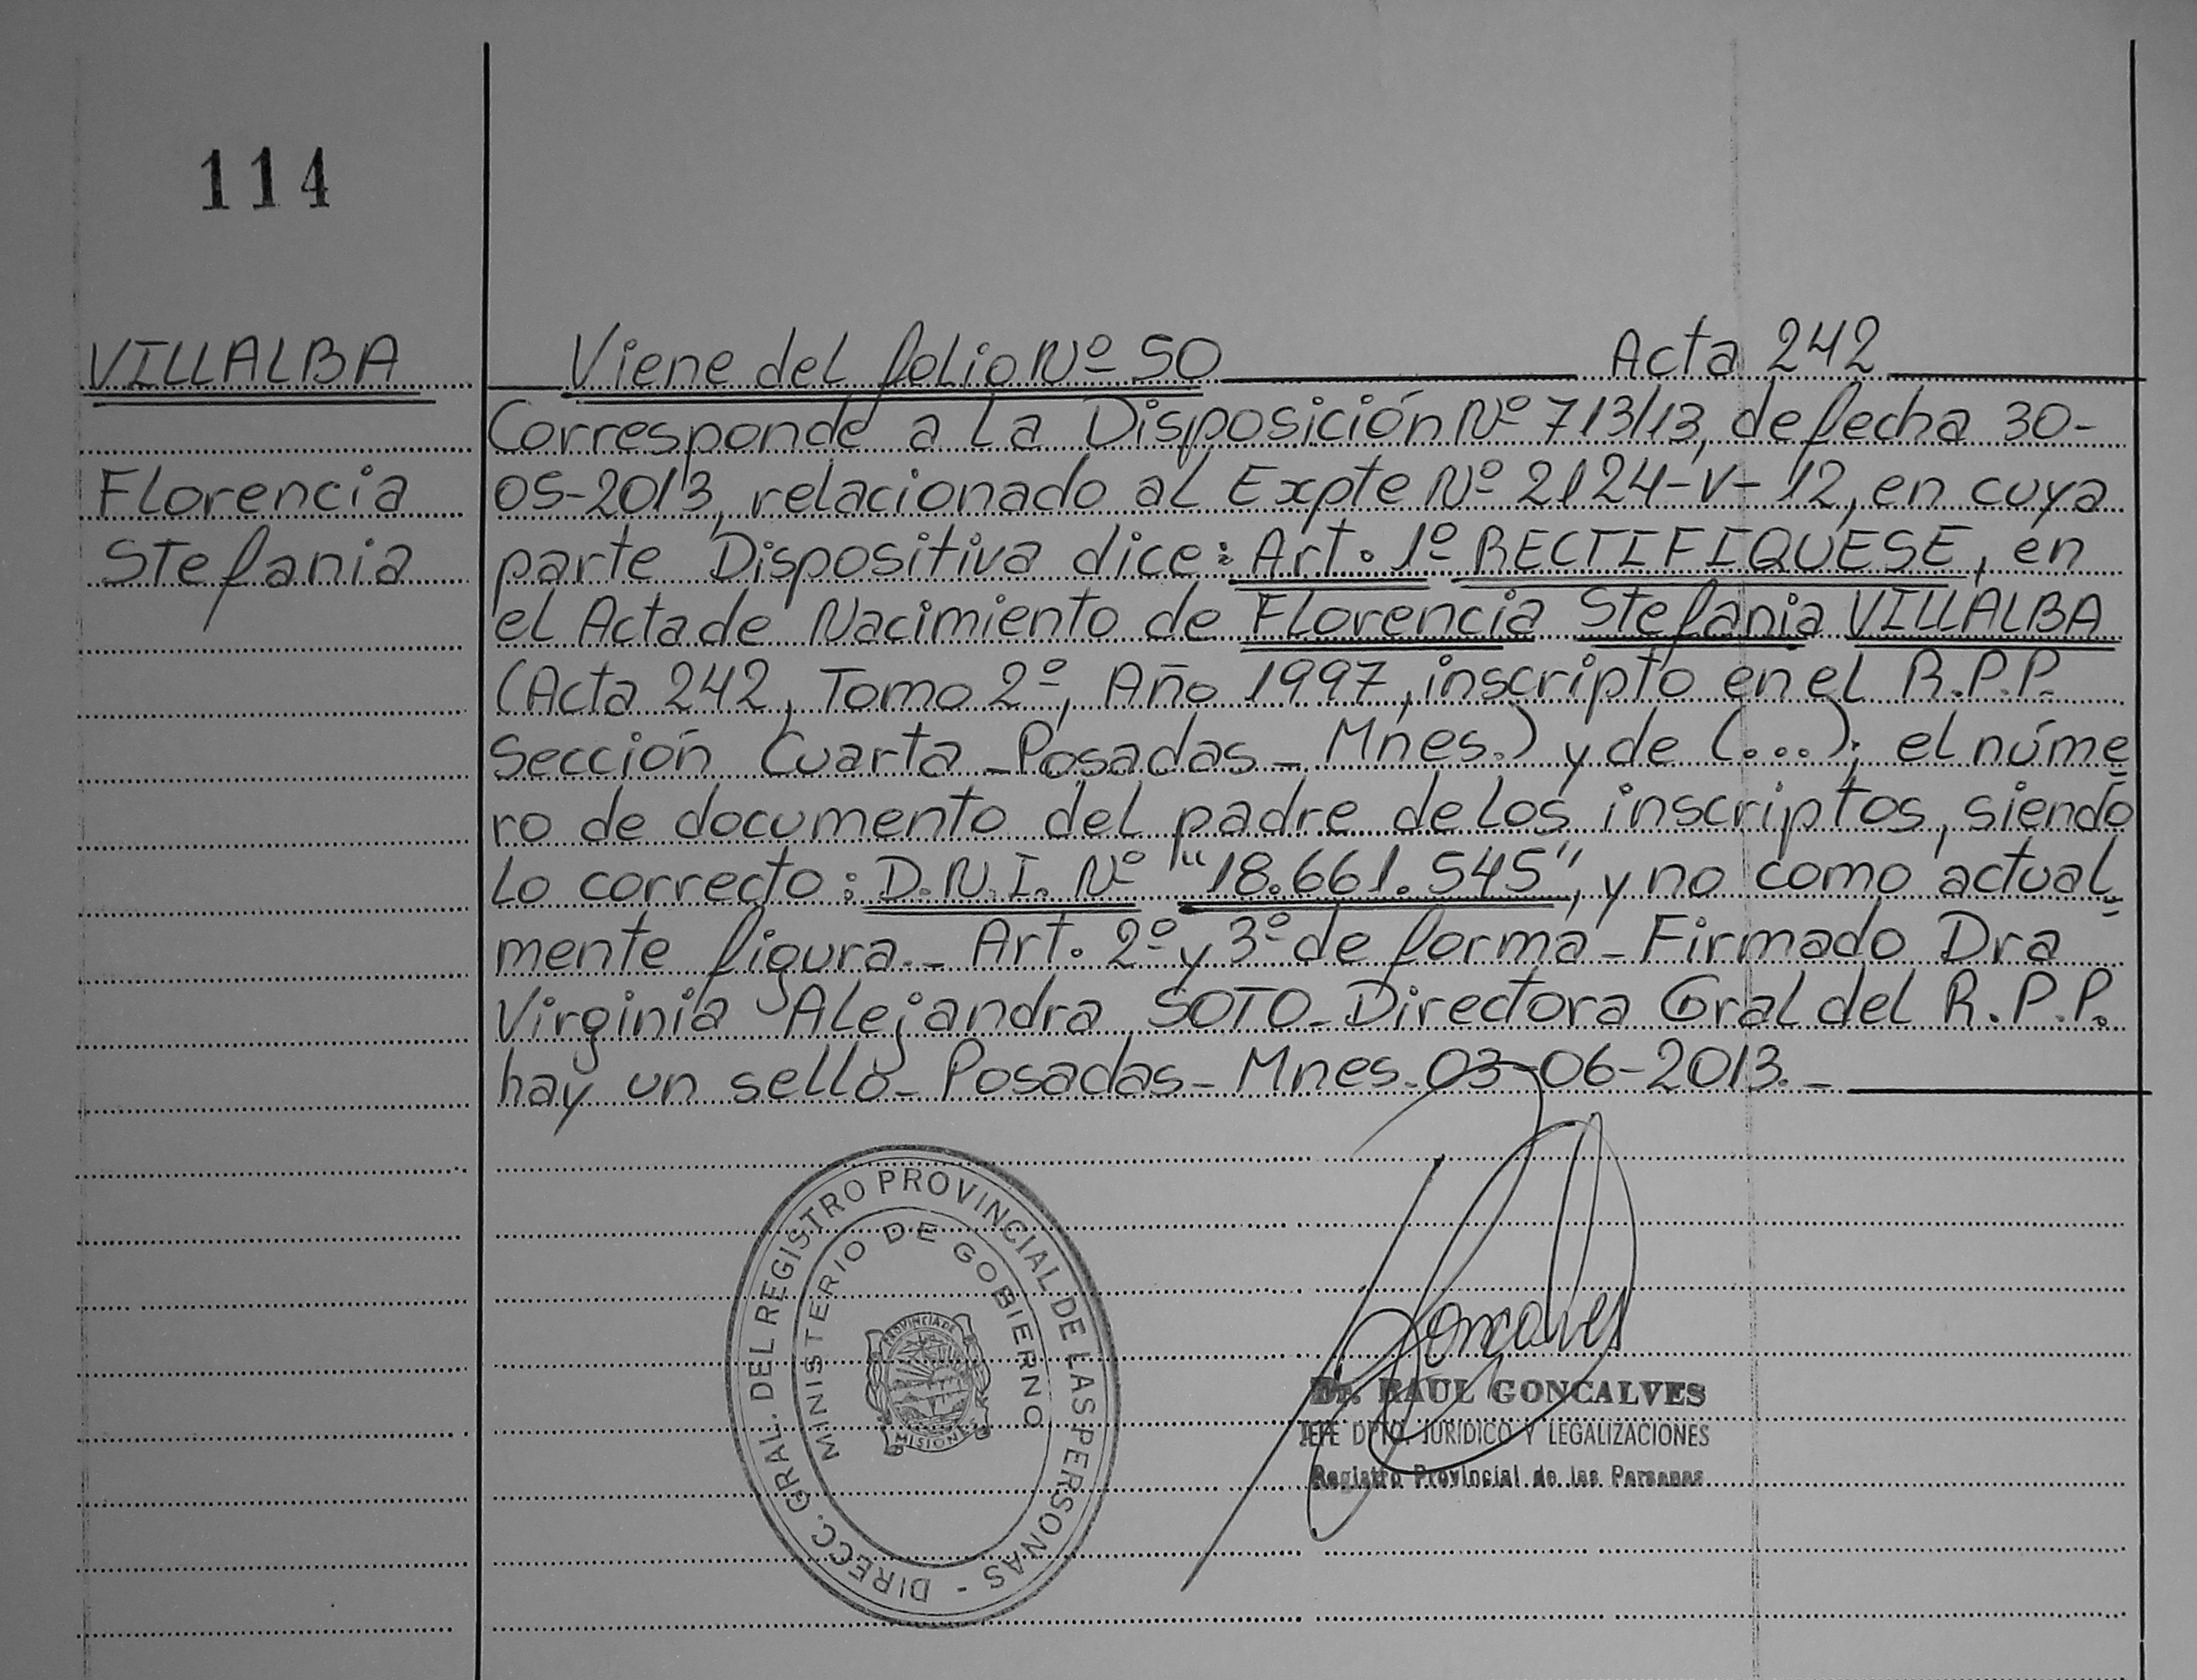 114
VILLALBA
Florencia
Stefania
Viene del folio Nº 50 Acta 242
Corresponde a La Disposición Nº 713/13, de fecha 30-
05-2013, relacionado al Expte Nº 2124-V-12, en cuya
parte Dispositiva dice: Art. 1º RECTIFIQUESE, en
el Acta de Nacimiento de Florencia Stefania VILLALBA
(Acta 242, Tomo 2º, Año 1997, inscripto en el R.P.P.
Sección Cuarta - Posadas - Mnes.) y de (...); el núme
ro de documento del padre de los inscriptos, siendo
lo correcto: D.N.I. Nº "18.661.545", y no como actual
mente figura.- Art. 2º y 3º de forma - Firmado Dra
Virginia Alejandra SOTO - Directora Gral del R.P.P.
hay un sello - Posadas - Mnes. 03-06-2013. -
DIRECC. GRAL. DEL REGISTRO PROVINCIAL DE LAS PERSONAS -
MINISTERIO DE GOBIERNO
PROVINCIA DE
MISIONES
Goncalves
Dr. RAUL GONCALVES
JEFE DPTO. JURIDICO Y LEGALIZACIONES
Registro Provincial de las Personas